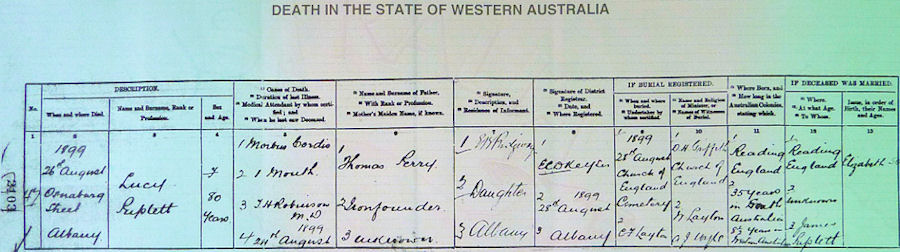 DEATH IN THE STATE OF WESTERN AUSTRALIA
DESCRIPTION.
IF BURIAL REGISTERED.
IF DECEASED WAS MARRIED.
No.
When and where Died.
Name and Surname, Rank or Profession.
Sex and Age.
(1) Cause of Death.
(2) Duration of last Illness.
(3) Medical Attendant by whom certified; and
(4) When he last saw Deceased.
(1) Name and Surname of Father,
(2) With Rank or Profession.
(3) Mother's Maiden Name, if known.
(1) Signature,
(2) Description, and
(3) Residence of Informant.
(1) Signature of District Registrar.
(2) Date, and
(3) Where Registered.
(1) When and where Buried.
(2) Undertaker by whom certified.
(1) Name and Religion of Minister, or
(2) Names of Witnesses of Burial.
(1) Where Born, and
(2) How long in the Australian Colonies, stating which.
(1) Where.
(2) At what Age.
(3) To Whom.
Issue, in order of Birth, their Names and Ages.
1 2 3 4 5 6 7 8 9 10 11 12 13
1899
26th August
Street
Albany
Lucy
Triplett
F
80
Years
1 Morbus Cordis
2 1 Month
3 J H Robinson M.D
1899
4 24th August
1
Thomas Perry
2 Ironfounder
3 unknown
1
2 Daughter
3 Albany
1
2 1899
28th August
3 Albany
1 1899
28th August
Church of England
Cemetery
2
Layton
1
Church of England
2
Layton
1
Reading
England
2
35 years
in South
Australia
5½ years in
Western Australia
1
Reading
England
2
unknown
3 James
Triplett
Elizabeth